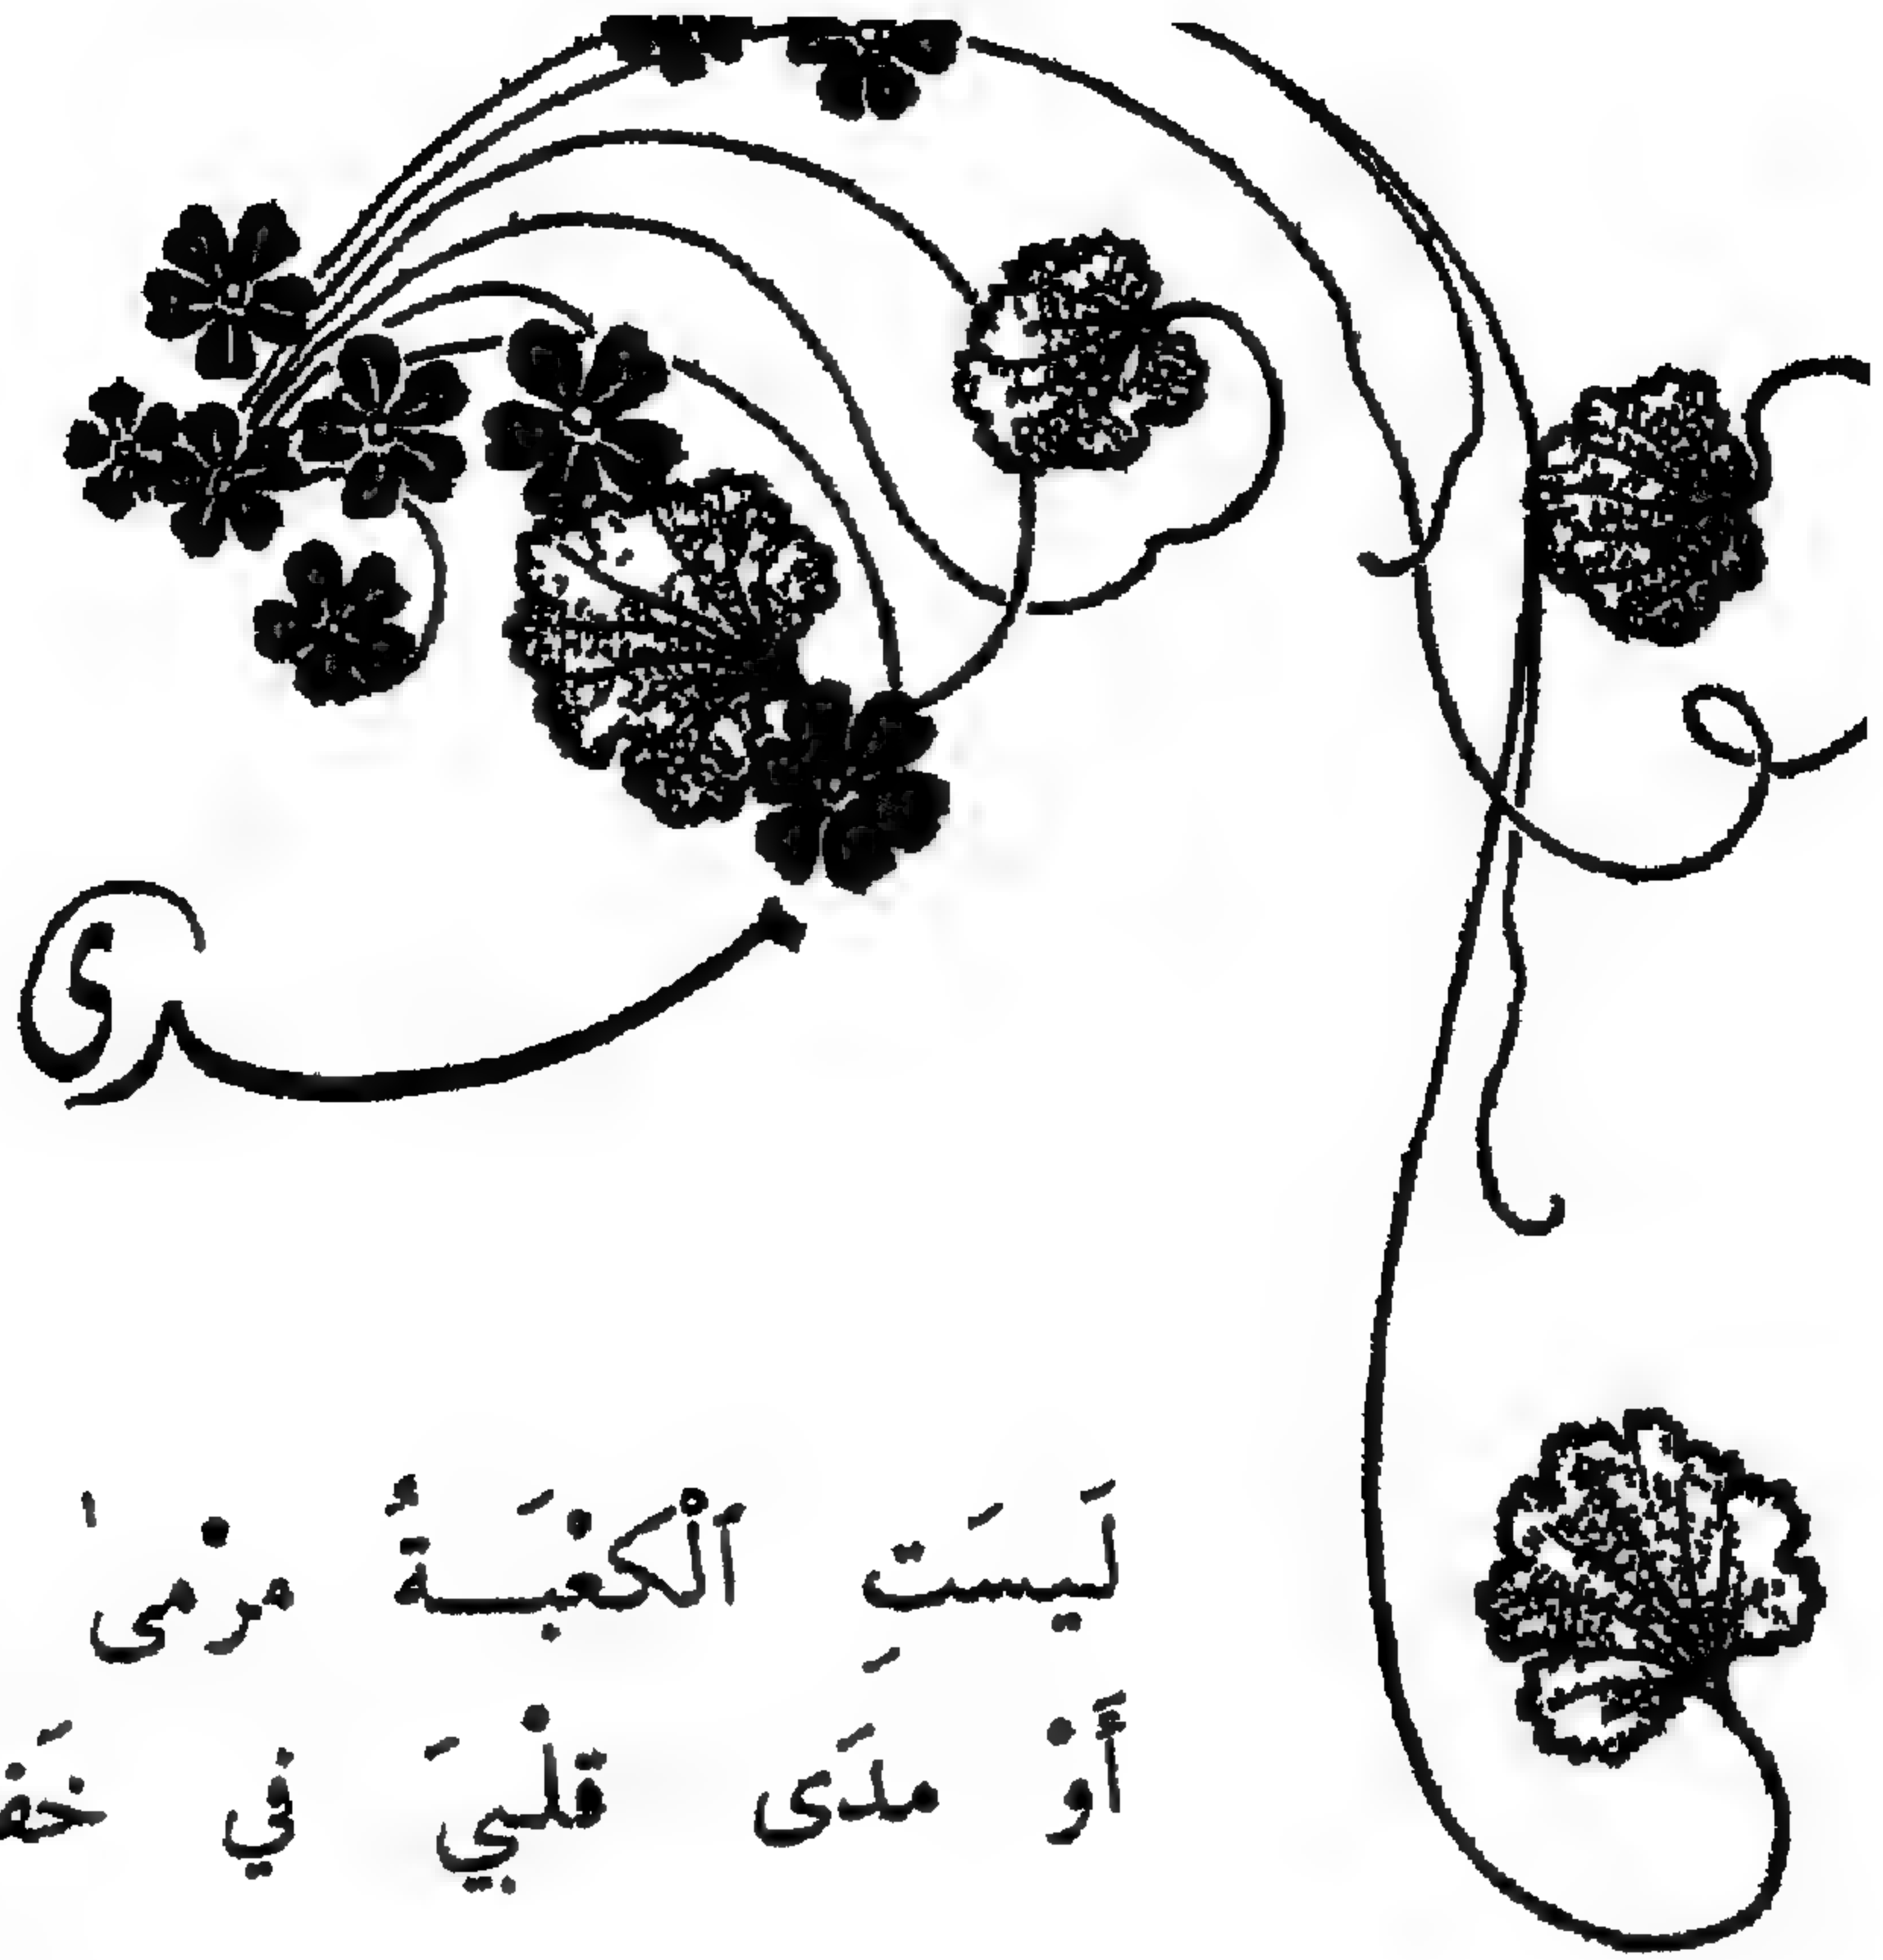 لَيسَتِ ٱلْكَعْبَةُ مرْمى
أَوْ مدَى قلْبيَ في